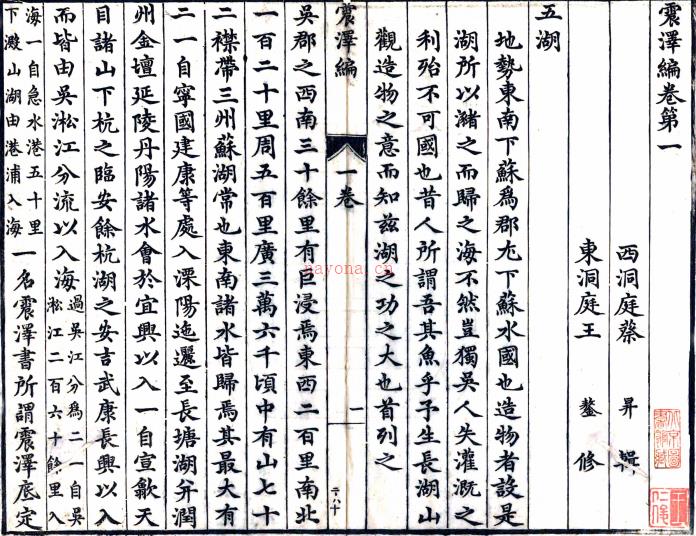 震澤編卷第一
西洞庭蔡 昇 輯
東洞庭王 鏊 修
五湖
地勢東南下蘇爲郡尤下蘇水國也造物者設是
湖所以瀦之而歸之海不然豈獨吳人失灌溉之
利殆不可國也昔人所謂吾其魚乎予生長湖山
觀造物之意而知茲湖之功之大也首列之
震澤編
一卷
一
吳郡之西南三十餘里有巨浸焉東西二百里南北
一百二十里周五百里廣三萬六千頃中有山七十
二襟帶三州蘇湖常也東南諸水皆歸焉其最大有
二一自寧國建康等處入溧陽迤邐至長塘湖并潤
州金壇延陵丹陽諸水會於宜興以入一自宣歙天
目諸山下杭之臨安餘杭湖之安吉武康長興以入
而皆由吳淞江分流以入海過吳江分爲二一自吳
淞江二百六十餘里入
海一自急水港五十里
下澱山湖由港浦入海一名震澤書所謂震澤底定
nayona.cn